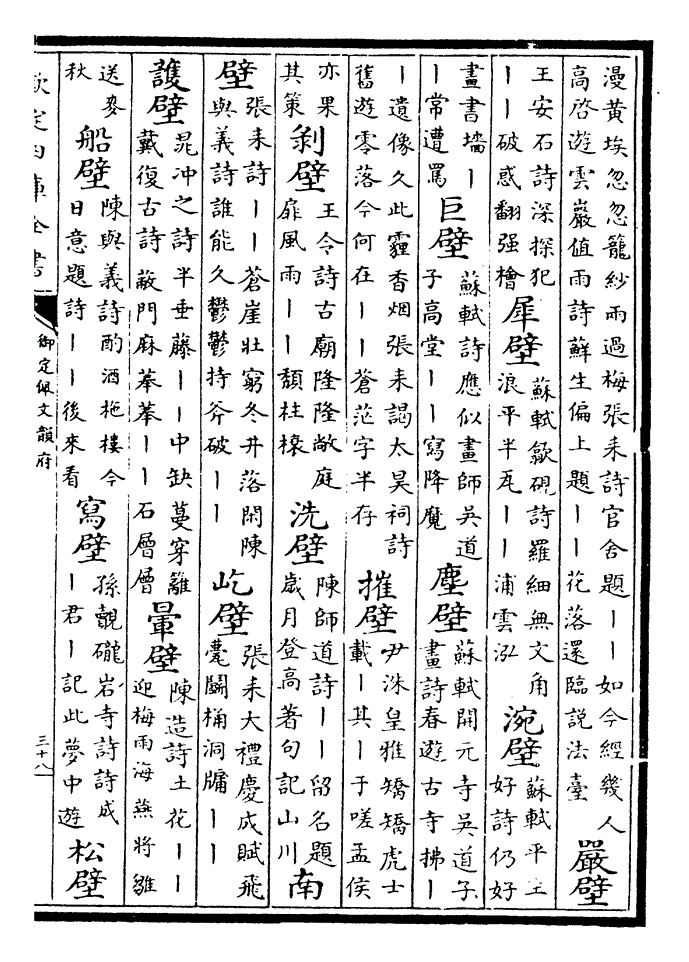 漫黄埃忽忽籠紗雨過梅張耒詩官舍題丨丨如今經幾人
高啓遊雲巖值雨詩蘚生偏上題丨丨花落還臨説法臺
巖壁
王安石詩深探犯
丨丨破惑翻强檜
犀壁
蘇軾歙硯詩羅細無文角
浪平半瓦丨丨浦雲泓
涴壁
蘇軾平生
好詩仍好
畫書墻丨
丨常遭罵
巨壁
蘇軾詩應似畫師吳道
子高堂丨丨寫降魔
塵壁
蘇軾開元寺吳道子
畫詩春遊古寺拂丨
丨遺像久此霾香烟張耒謁太昊祠詩
舊遊零落今何在丨丨蒼茫字半存
摧壁
尹洙皇雅矯矯虎士
載丨其丨于嗟孟侯
亦果
其策
剥壁
王令詩古廟隆隆敞庭
扉風雨丨丨頽柱榱
洗壁
陳師道詩丨丨留名題
歲月登高著句記山川
南
壁
張耒詩丨丨蒼崖壯窮冬井落閑陳
與義詩誰能久鬱鬱持斧破丨丨
屹壁
張耒大禮慶成賦飛
甍鬭桷洞牖丨丨
護壁
晁冲之詩半垂藤丨丨中缺蔓穿籬
戴復古詩敝門麻菶菶丨丨石層層
暈壁
陳造詩土花丨丨
迎梅雨海燕將雛
送麥
秋
船壁
陳與義詩酌酒柂樓今
日意題詩丨丨後來看
寫壁
孫覿礲岩寺詩詩成
丨君丨記此夢中遊
松壁
欽定四庫全書
御定佩文韻府
三十八